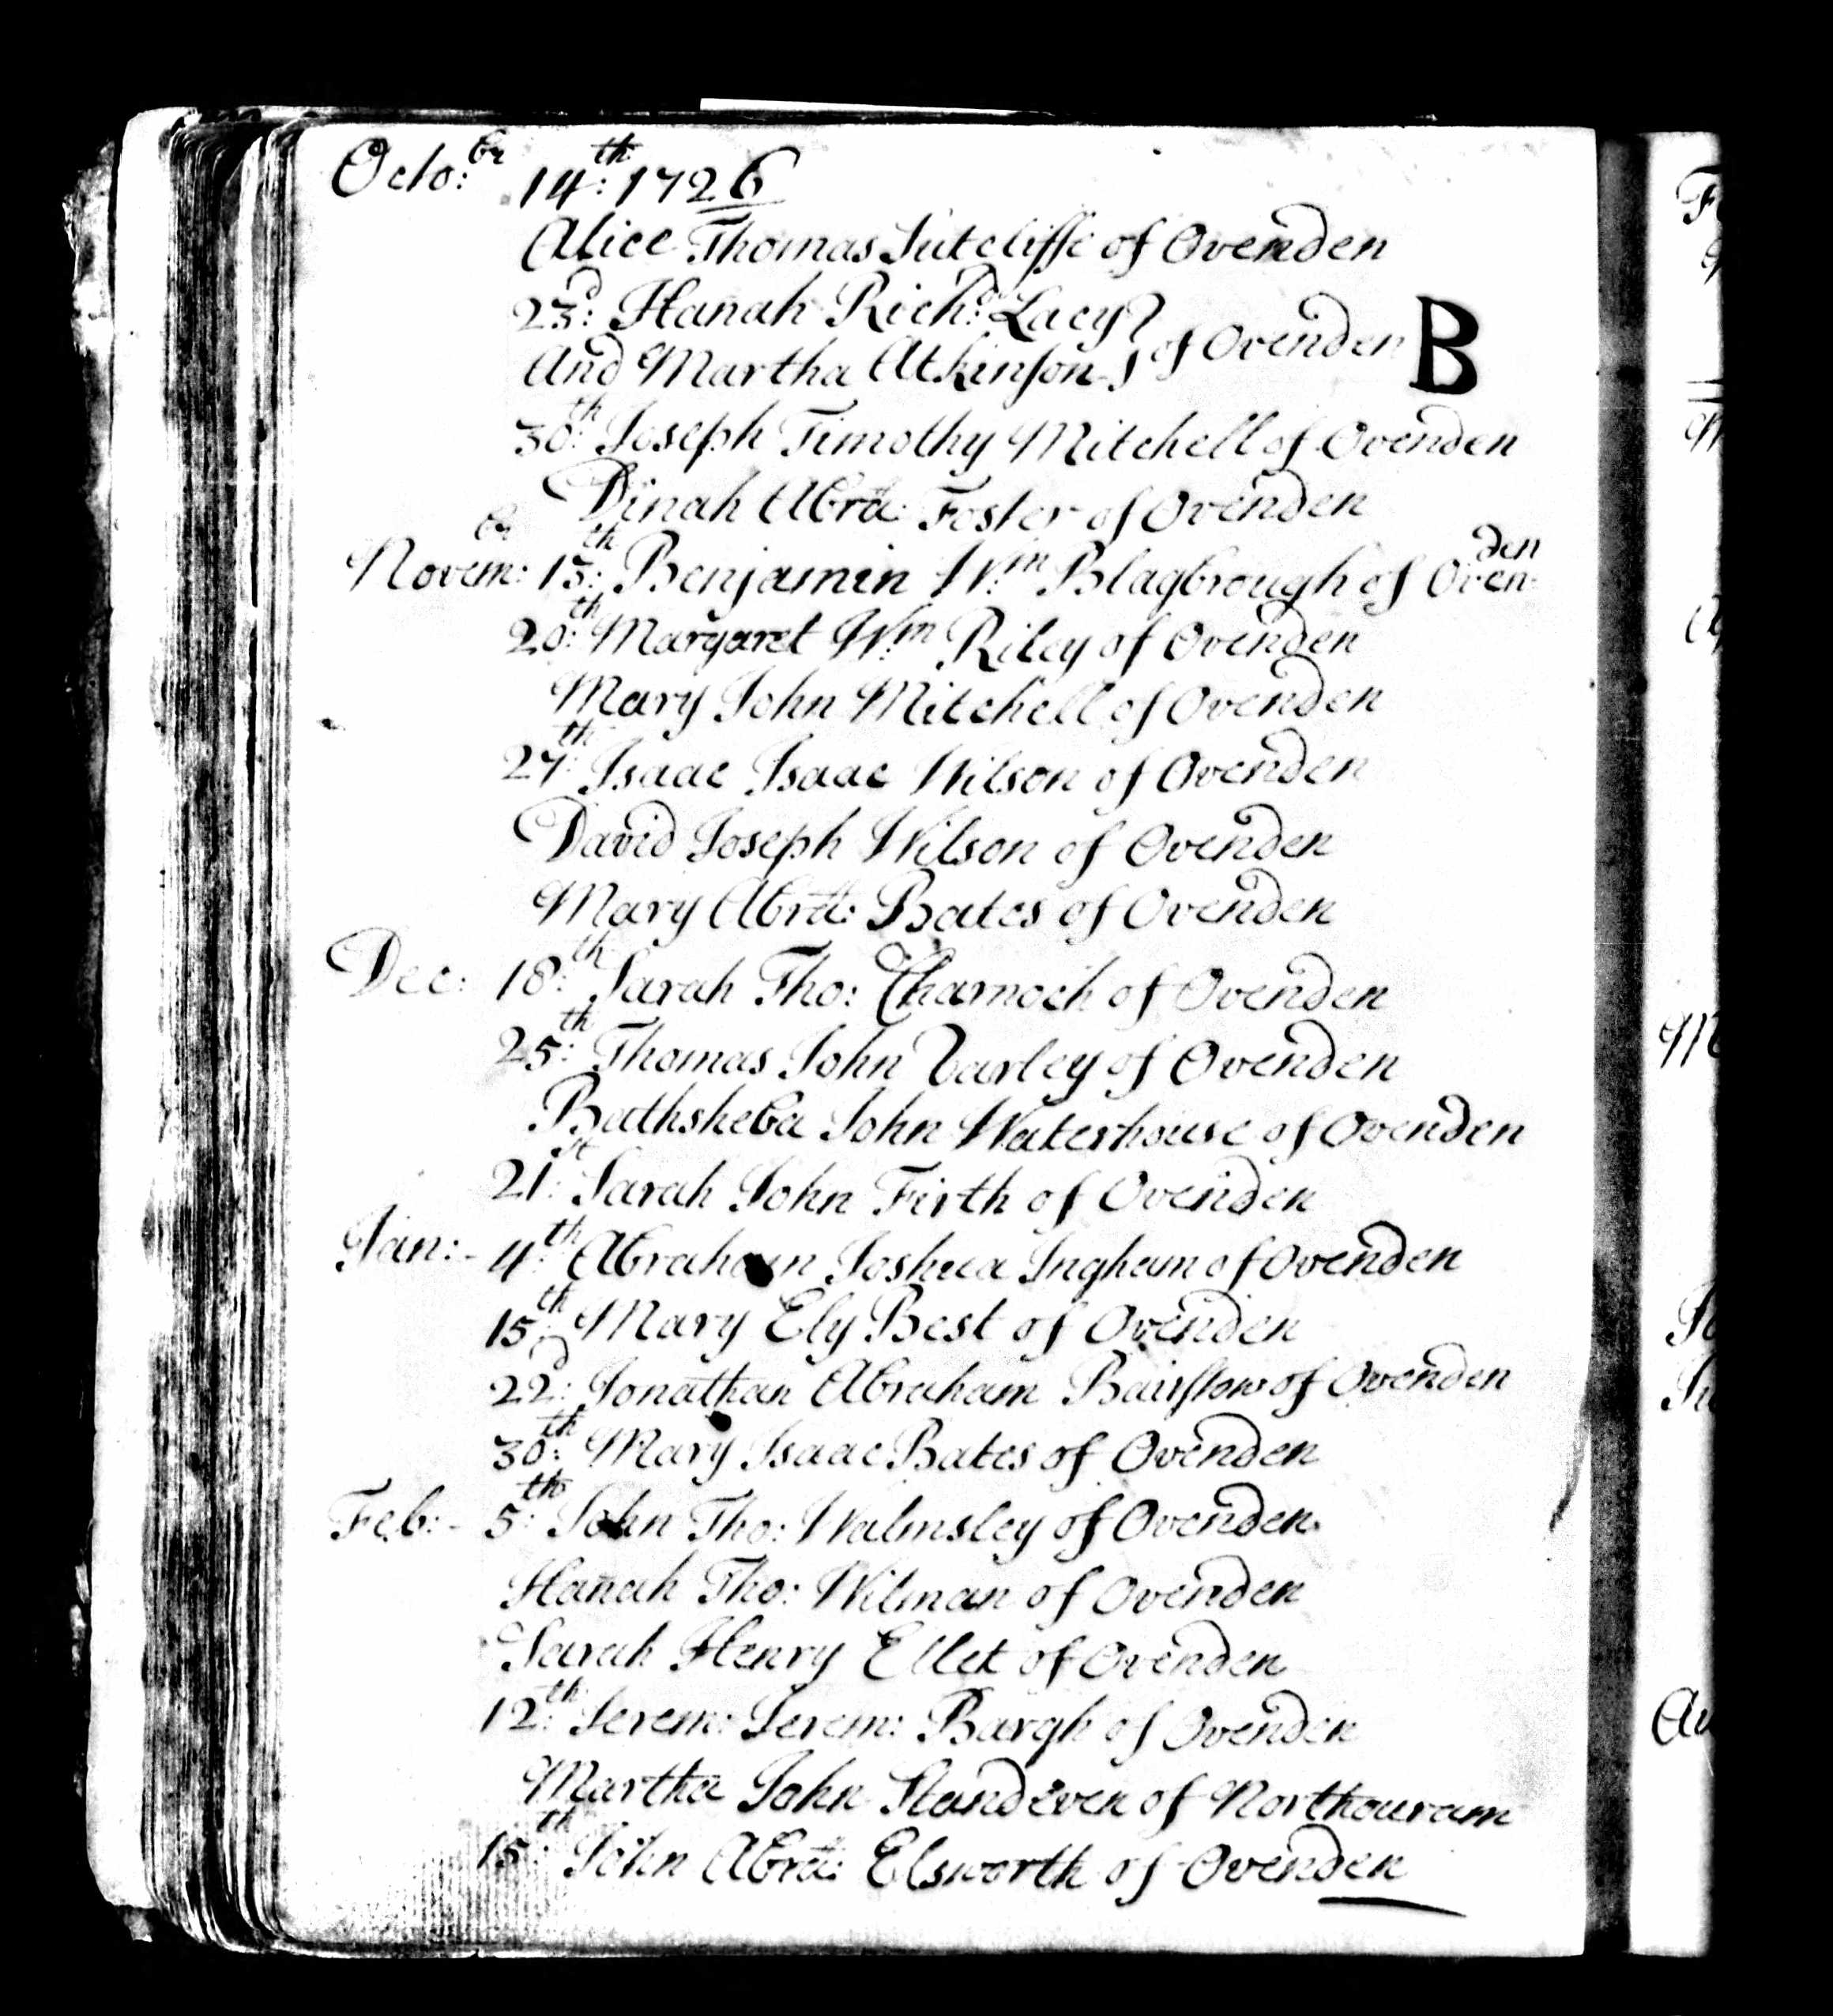 Octo:br 14:th 1726
Alice Thomas Sutcliffe of Ovenden
23:d Hanah Rich:d Lacy } of Ovenden B
And Martha Atkinson }
30:th Joseph Timothy Mitchell of Ovenden
Dinah Abra: Foster of Ovenden
Novem:br 13:th Benjamin Wm Blagbrough of Ovenden
20:th Margaret Wm Riley of Ovenden
Mary John Mitchell of Ovenden
27:th Isaac Isaac Wilson of Ovenden
David Joseph Wilson of Ovenden
Mary Abra: Bates of Ovenden
Dec: 18:th Sarah Tho: Charnock of Ovenden
25:th Thomas John Varley of Ovenden
Bathsheba John Waterhouse of Ovenden
21:st Sarah John Firth of Ovenden
Jan:- 4:th Abraham Joshua Ingham of Ovenden
15:th Mary Ely Best of Ovenden
22:d Jonathan Abraham Bairstow of Ovenden
30:th Mary Isaac Bates of Ovenden
Feb:- 5:th John Tho: Walmsley of Ovenden
Hanah Tho: Wilman of Ovenden
Sarah Henry Ellet of Ovenden
12:th Jerem: Jerem: Bargh of Ovenden
Martha John Standeven of Northouram
15:th John Abra: Elsworth of Ovenden